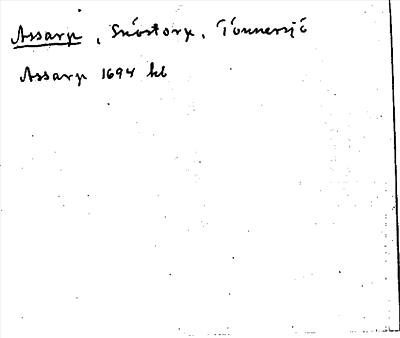 Assarp, Snöstorp, Tönnersjö
Assarp 1694 kb